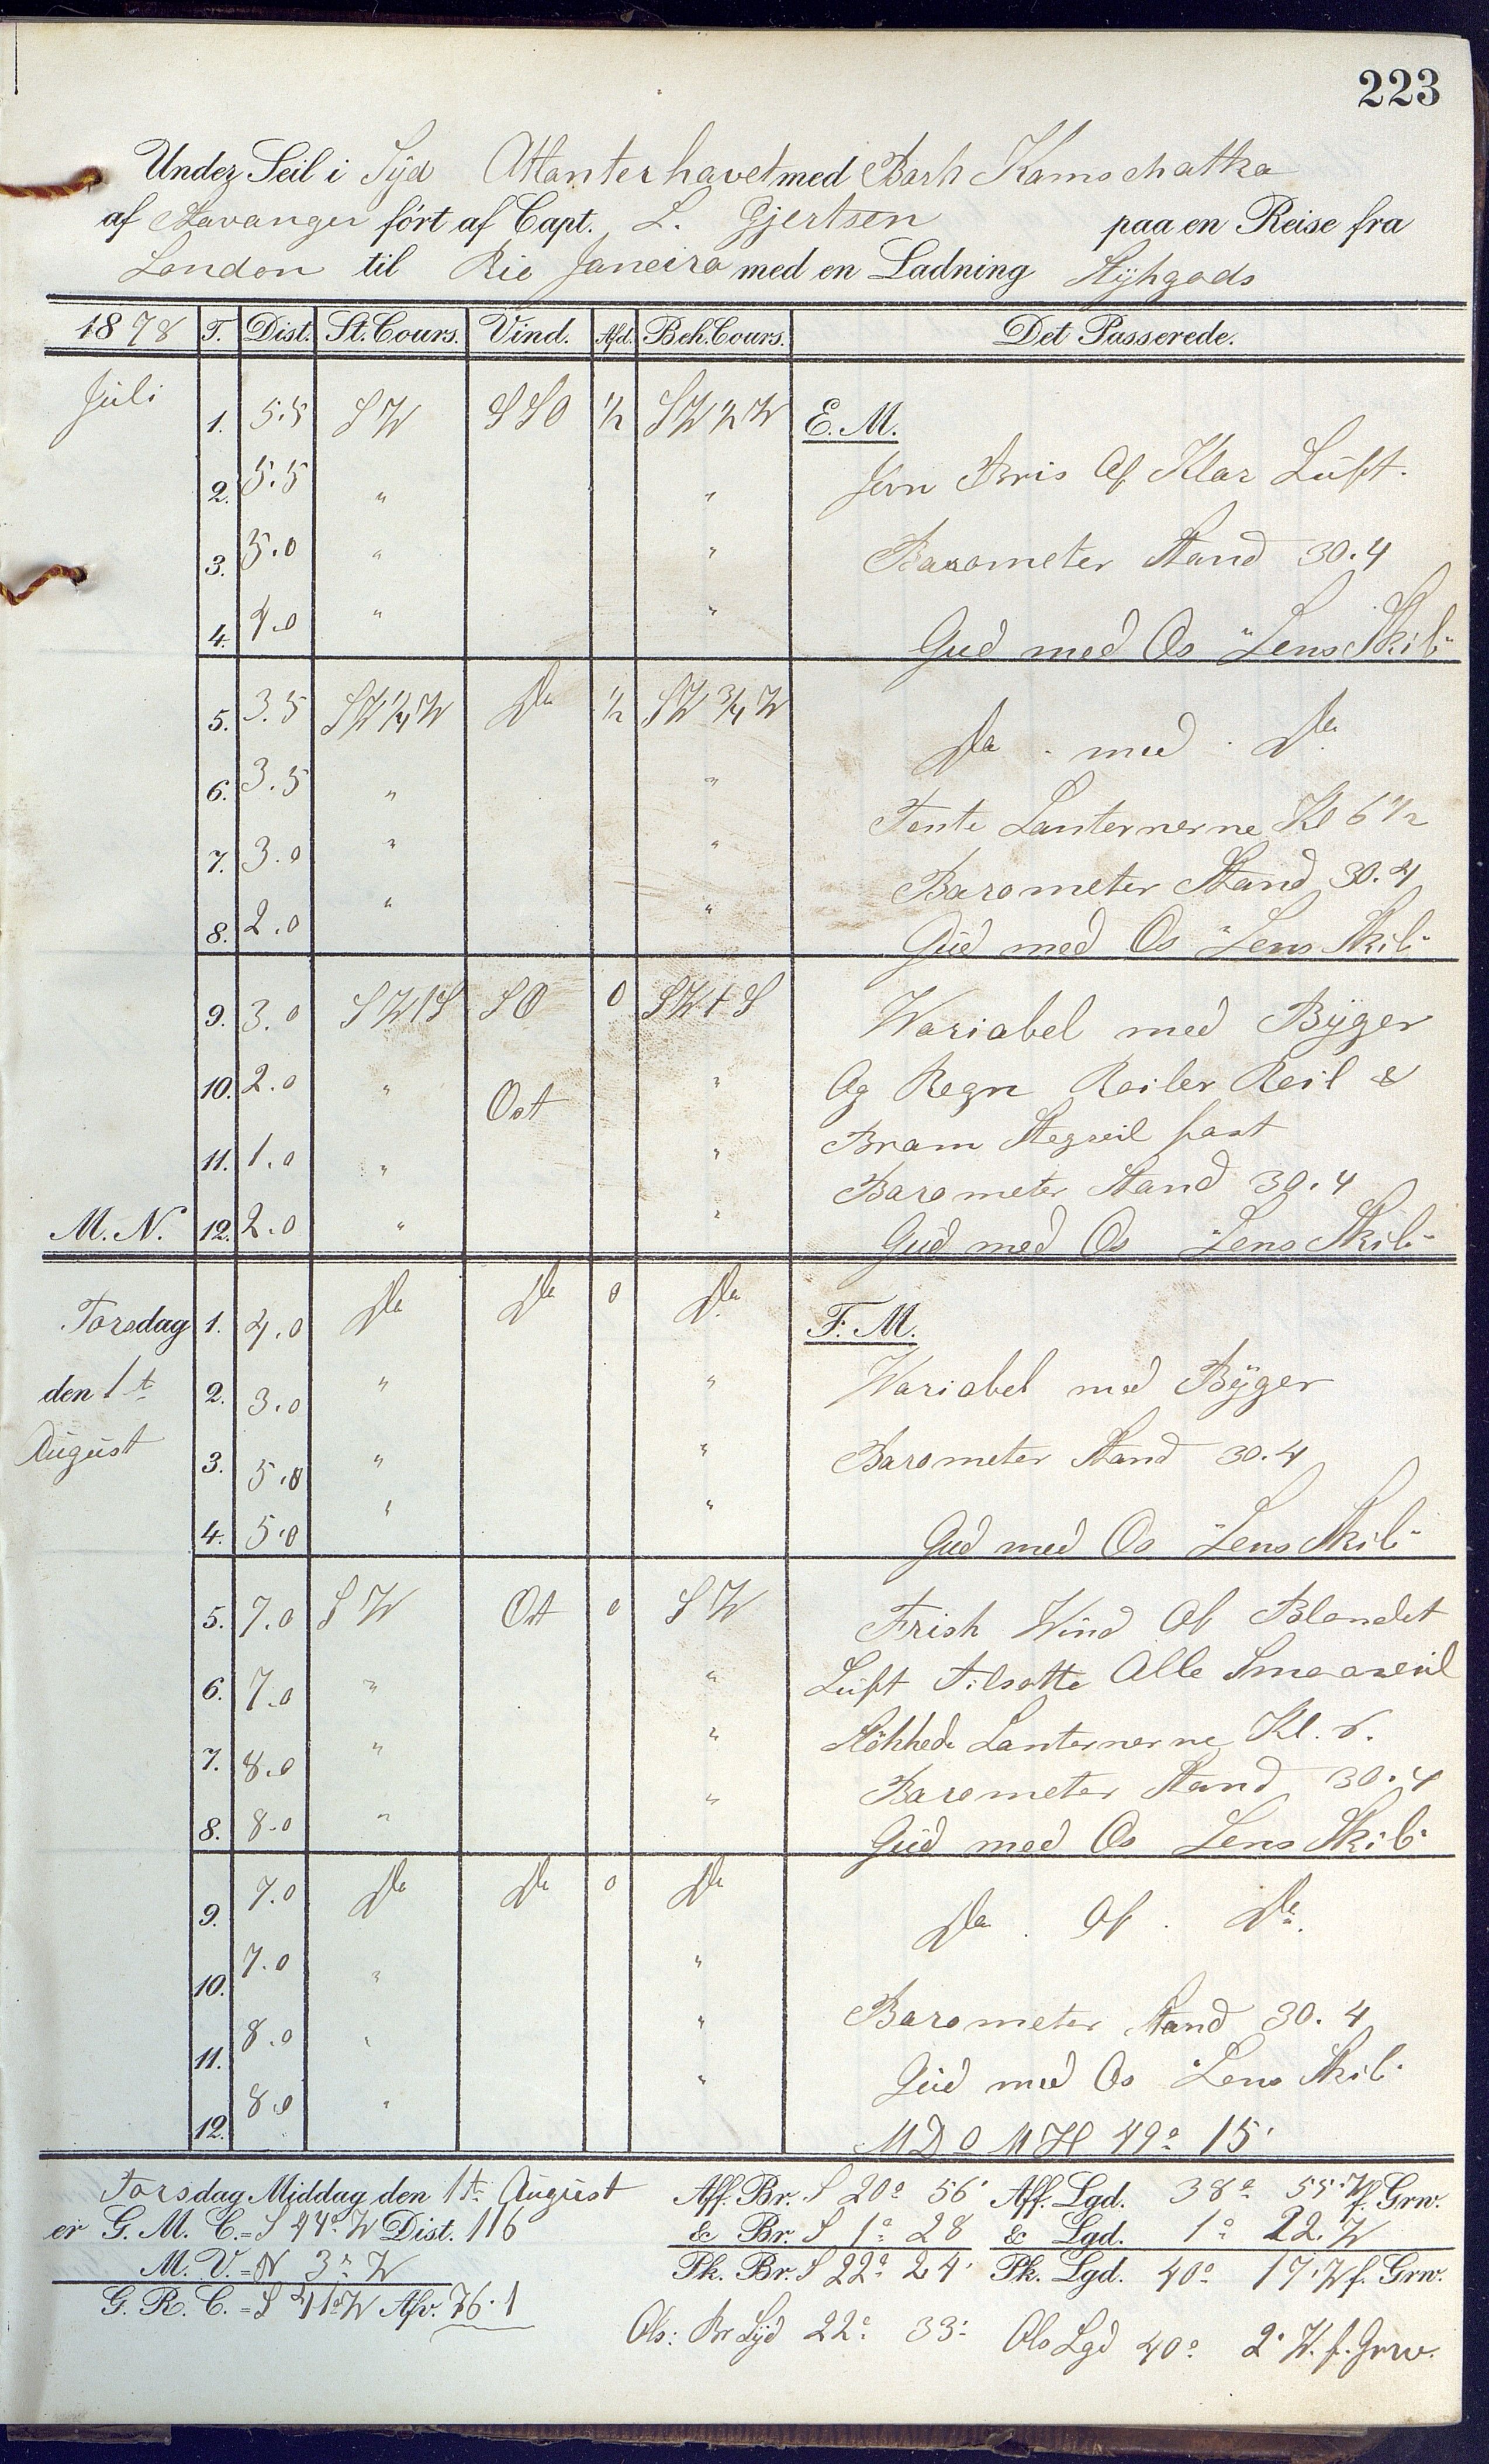 223
Under Seil i Syd Atlanterhavet med Bark Kamschatka
af Stavanger ført af Capt. L. Gjertsen paa en Reise fra
London til Rio Janeiro med en Ladning Stÿkgods
1878 T. Dist. St. Cours. Vind. Afd. Beh. Cours. Det Passerede.
Juli 1. 5.5 SW SSO ½ SW½W E. M.
2. 5.5 " " Jevn Bris Af Klar Luft.
3. 5.0 " " Barometer Stand 30.4
4. 4.0 " " Gud med Os "Lens Skib"
5. 3.5 SW¼W Do ½ SW¾W Do . med . Do
6. 3.5 " " Tente Lanternerne Kl 6½
7. 3.0 " " Barometer Stand 30.4
8. 2.0 " " Gud med Os "Lens Skib"
9. 3.0 SWtS SO 0 SWtS Wariabel med Bÿger
10. 2.0 " Ost " Og Regn Roiler Reil &
11. 1.0 " " Bram Stegseil fast
Barometer Stand 30.4
M. N. 12. 2.0 " " Gud med Os "Lens Skib"
Torsdag 1. 4.0 Do Do 0 Do F. M.
den 1t 2. 3.0 " " Wariabel med Bÿger
August 3. 5.0 " " Barometer Stand 30.4
4. 5.0 " " Gud med Os "Lens Skib"
5. 7.0 SW Ost 0 SW Frisk Wind Af Blandet
6. 7.0 " " Luft Tilsatte Alle Smaaseil
7. 8.0 " " Slökkede Lanternerne Kl. 6.
Barometer Stand 30.4
8. 8.0 " " Gud med Os Lens Skib"
9. 7.0 Do Do 0 Do Do . Af . Do.
10. 7.0 " "
11. 8.0 " " Barometer Stand 30.4
Gud med Os "Lens Skib"
12. 8.0 " " M D O M H 49° 15'
Torsdag Middag den 1t August Aff. Br. S 20° 56' Aff. Lgd. 38° 55' W f. Grw.
er G. M. C. = S 44° W Dist. 116 & Br. S 1° 28 & Lgd. 1° 22. W
M. V. = N 3° W Pk. Br. S 22° 24' Pk. Lgd. 40° 17' W f. Grw.
G. R. C. = S 41° W Afv. 76.1
Obs: Br Syd 22° 33' Obs Lgd 40° 2' W. f. Grw.